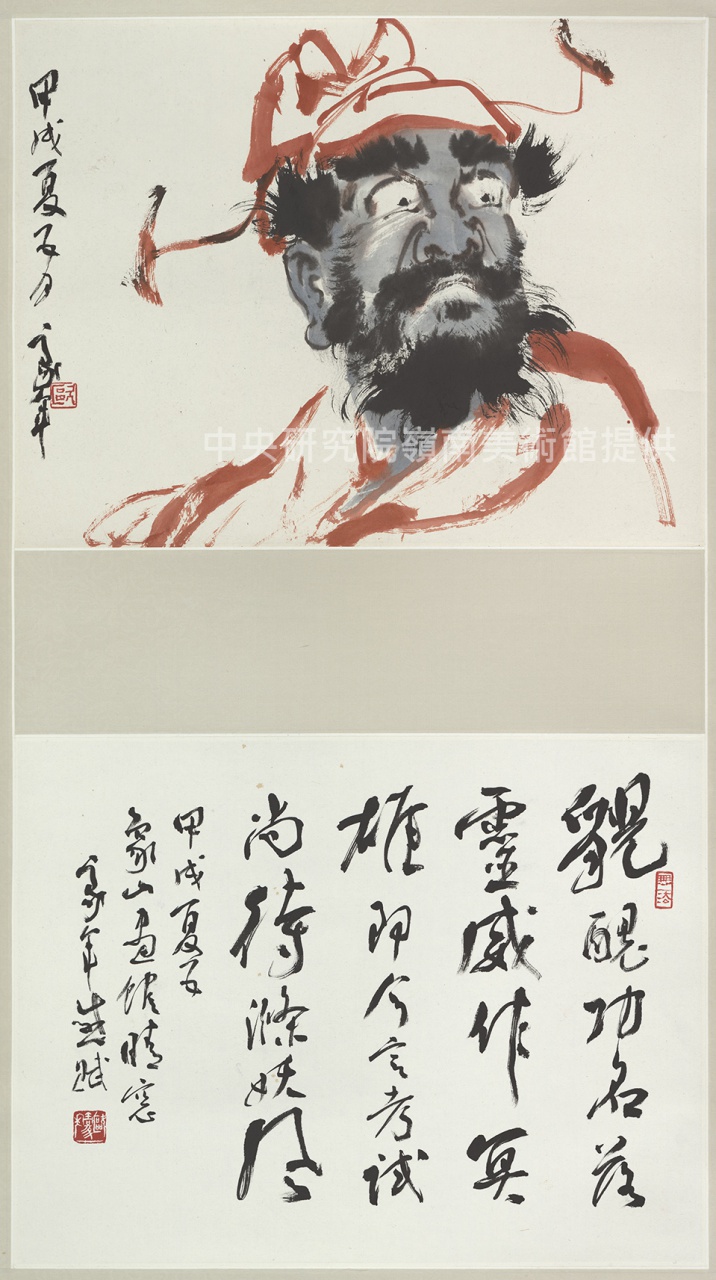 甲戌夏五月
豪年
歐
中央研究院嶺南美術館提供
貌醜功名落
靈威作冥
雄即今言考試
尚待滌妖風
甲戌夏五
象山畫館晴窓
豪年並賦
歐豪年